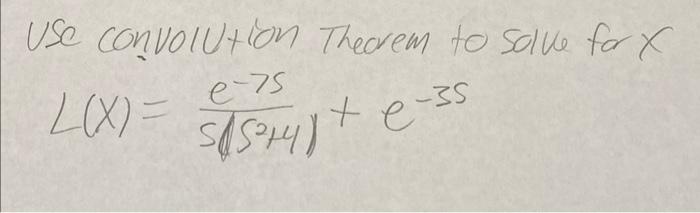 USe convolution Theorem to Solve for X
L(X) = e^-7S / S(S²+4) + e^-3S